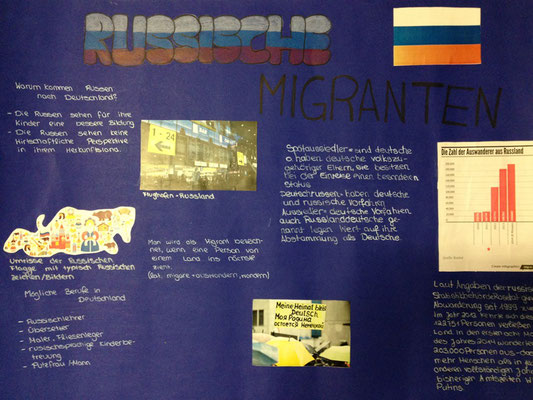 RUSSISCHE
MIGRANTEN
Warum kommen Russen
nach Deutschland?
- Die Russen sehen für ihre
Kinder eine bessere Bildung
- Die Russen sehen keine
Wirtschaftliche Perspektive
in ihrem
1 - 24
Flughafen - Russland
Umrisse der Russischen
Flagge mit typisch Russischen
Zeichen/Bildern
Mögliche Berufe in
Deutschland
- Russischlehrer
- Übersetzer
- Maler, Fliesenleger
- russischsprachige Kinderbe-
treuung
- Putzfrau/Mann
Man wird als Migrant bezeich-
net, wenn eine Person von
einem Land ins nächste
zieht.
(lat. migrare = auswandern, wandern)
Spätaussiedler = sind deutsche
o. haben deutsche volkszu-
gehöriger Eltern, sie besitzen
bei der Einreise einen besondern
Status
Deutschrussen = haben deutsche
und russische Vorfahren
Aussiedler = deutsche Vorfahren
auch Russlanddeutsche ge-
nannt legen Wert auf ihre
Abstammung als Deutsche.
Meine Heimat bleibt
DEUTSCH
МОЯ РОДИНА
ОСТАЕТСЯ НЕМЕЦКОЙ
Die Zahl der Auswanderer aus Russland
Laut Angaben der russi
Abwanderung seit 1999
Im Jahr 2013
Personen verließen
Land in den ersten acht
des Jahres 2014 wanderten
203.000 Personen aus - das
mehr Menschen als in
anderen vollständigen Jahr
bisheriger Amtszeiten W
Putins.